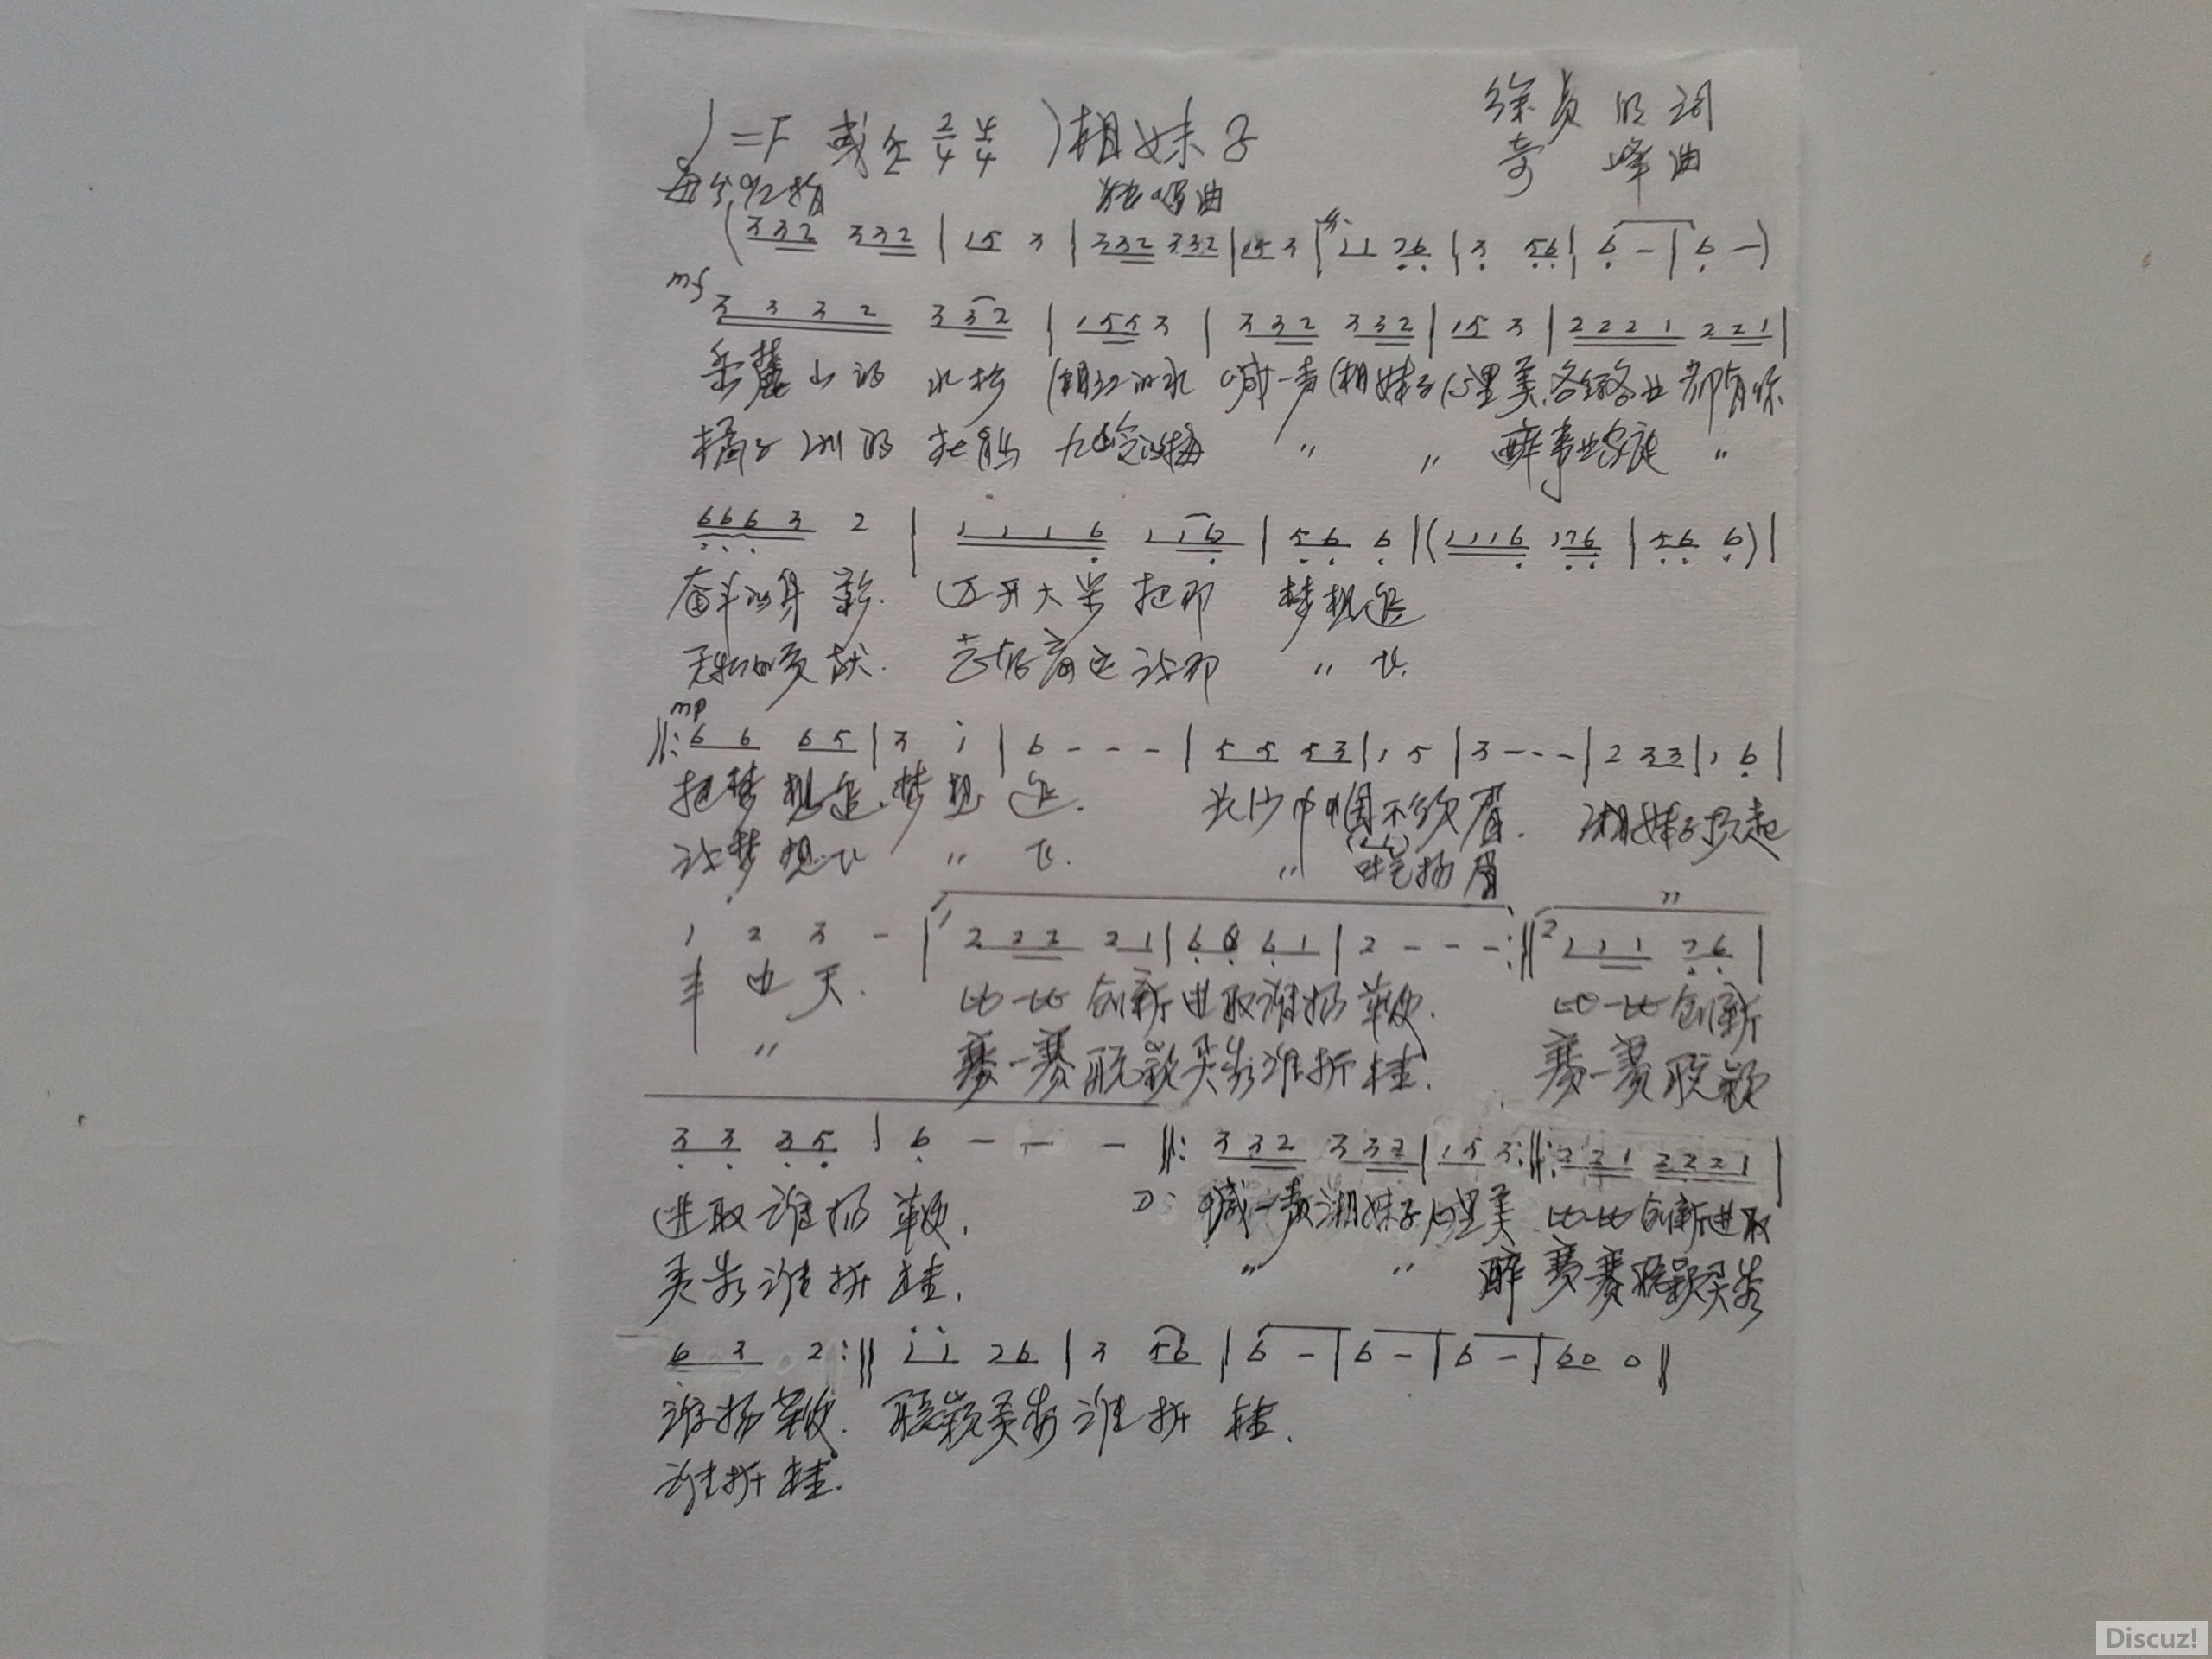 1=F 或 2/4 4/4 湘妹子 徐 明 词
每分92拍 独唱曲 奇峰曲
(3 3 2 3 3 2 | 1 5 3 | 3 3 2 3 3 2 | 1 5 3 | 1 1 7 6 | 3 5 6 | 6 - | 6 -)
mf
3 3 3 2 3 3 2 | 1 5 5 3 | 3 3 2 3 3 2 | 1 5 3 | 2 2 2 1 2 2 1 |
岳麓山的 水杉 湘江的水 喊一声湘妹子心里美.各行各业 都有你
橘子洲的 〃 〃 醉事业 〃
6 6 6 3 2 | 1 1 1 6 1 1 6 | 5 6 6 | (1 1 1 6 1 7 6 | 5 6 6) |
奋斗的身影. 迈开大步 把那 梦想追
无私的贡献. 让那 〃 飞.
mp
‖: 6 6 6 5 | 3 i | 6 - - - | 5 5 5 3 | 1 5 | 3 - - - | 2 3 3 | 1 6 |
把梦想追.梦想 追. 长沙巾帼不 眉. 湘妹子撑起
让梦想飞 〃 飞. 〃 吐气扬眉 〃
1 2 3 - | 1 2 2 2 2 1 | 6 6 6 1 | 2 - - - :‖ 2 1 1 1 7 6 |
半边天. 比一比创新进取谁扬鞭. 比一比创新
〃 赛一赛脱颖 谁折桂. 赛一赛脱颖
3 3 3 5 | 6 - - - ‖: 3 3 2 3 3 2 | 1 5 3 :‖: 2 2 1 2 2 2 1 |
进取谁扬鞭. 喊一声湘妹子心里美 比一比创新进取
谁折桂. 〃 〃 醉 赛一赛脱颖
6 3 2 :‖ i i 2 6 | 3 5 6 | 6 - | 6 - | 6 - | 6 0 0 ‖
谁扬鞭. 脱颖 谁折桂.
谁折桂.
Discuz!